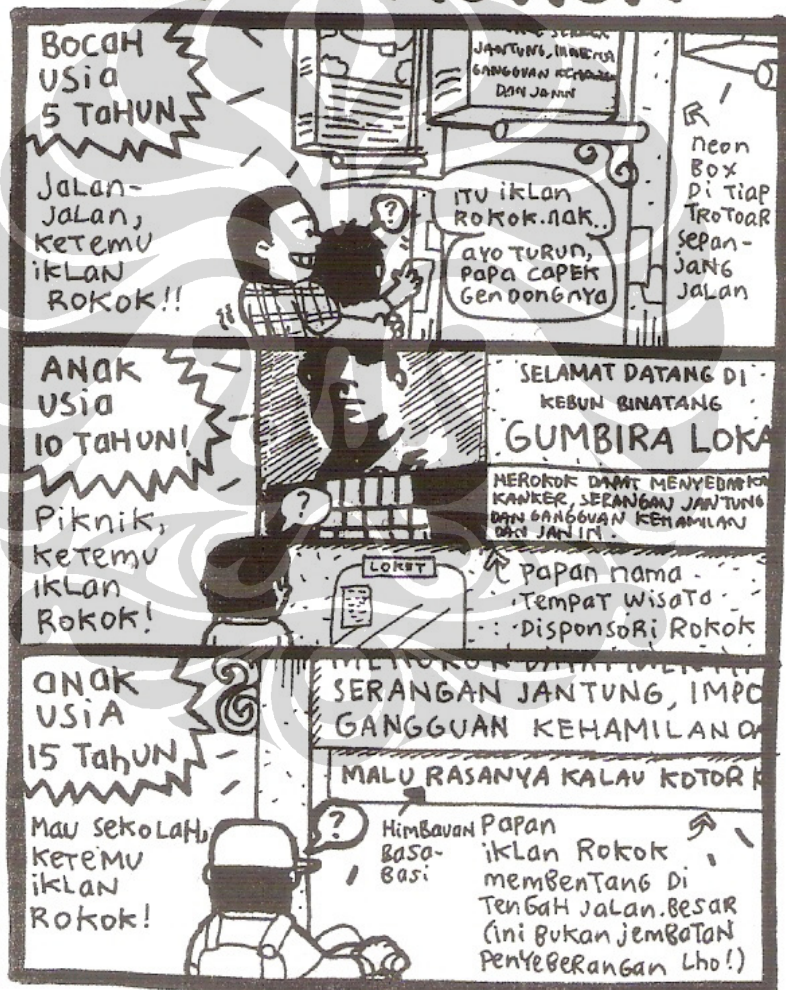 BOCAH
USia
5 TAHUN
JaLan-
JaLan,
KETEMU
iKLaN
ROKOK!!
JANTUNG,
GANGGUAN
DAN JANIN
?
iTU iKLan
ROKOK.nak..
ayo TURUN,
PaPa CaPEK
GenDongnya
neon
BOX
Di Tiap
TROTOAR
Sepan-
JaNG
JaLan
ANaK
USia
10 TaHUN!
Piknik,
KETEMU
iKLan
ROKOK!
?
SELAMAT DATANG DI
KEBUN BINATANG
GUMBIRA LOKA
MEROKOK DAPAT
KANKER, SERANGAN JANTUNG
DAN GANGGUAN KEHAMILAN
DAN JANIN.
LOKET
PaPan nama
TEMPAT WISaTa
DISPONSORi ROKOK
aNaK
USiA
15 TahUN
Mau SEKOLAH,
KETEMU
iKLaN
ROKOK!
?
SERANGAN JANTUNG, IMPO
GANGGUAN KEHAMILAN DA
MALU RASANYA KALAU KOTOR K
HimBauan
Basa-
Basi
Papan
iKLan ROKOK
memBenTanG Di
TenGaH JaLan.Besar
(ini Bukan jemBaTaN
PenyeBeRangan Lho!)